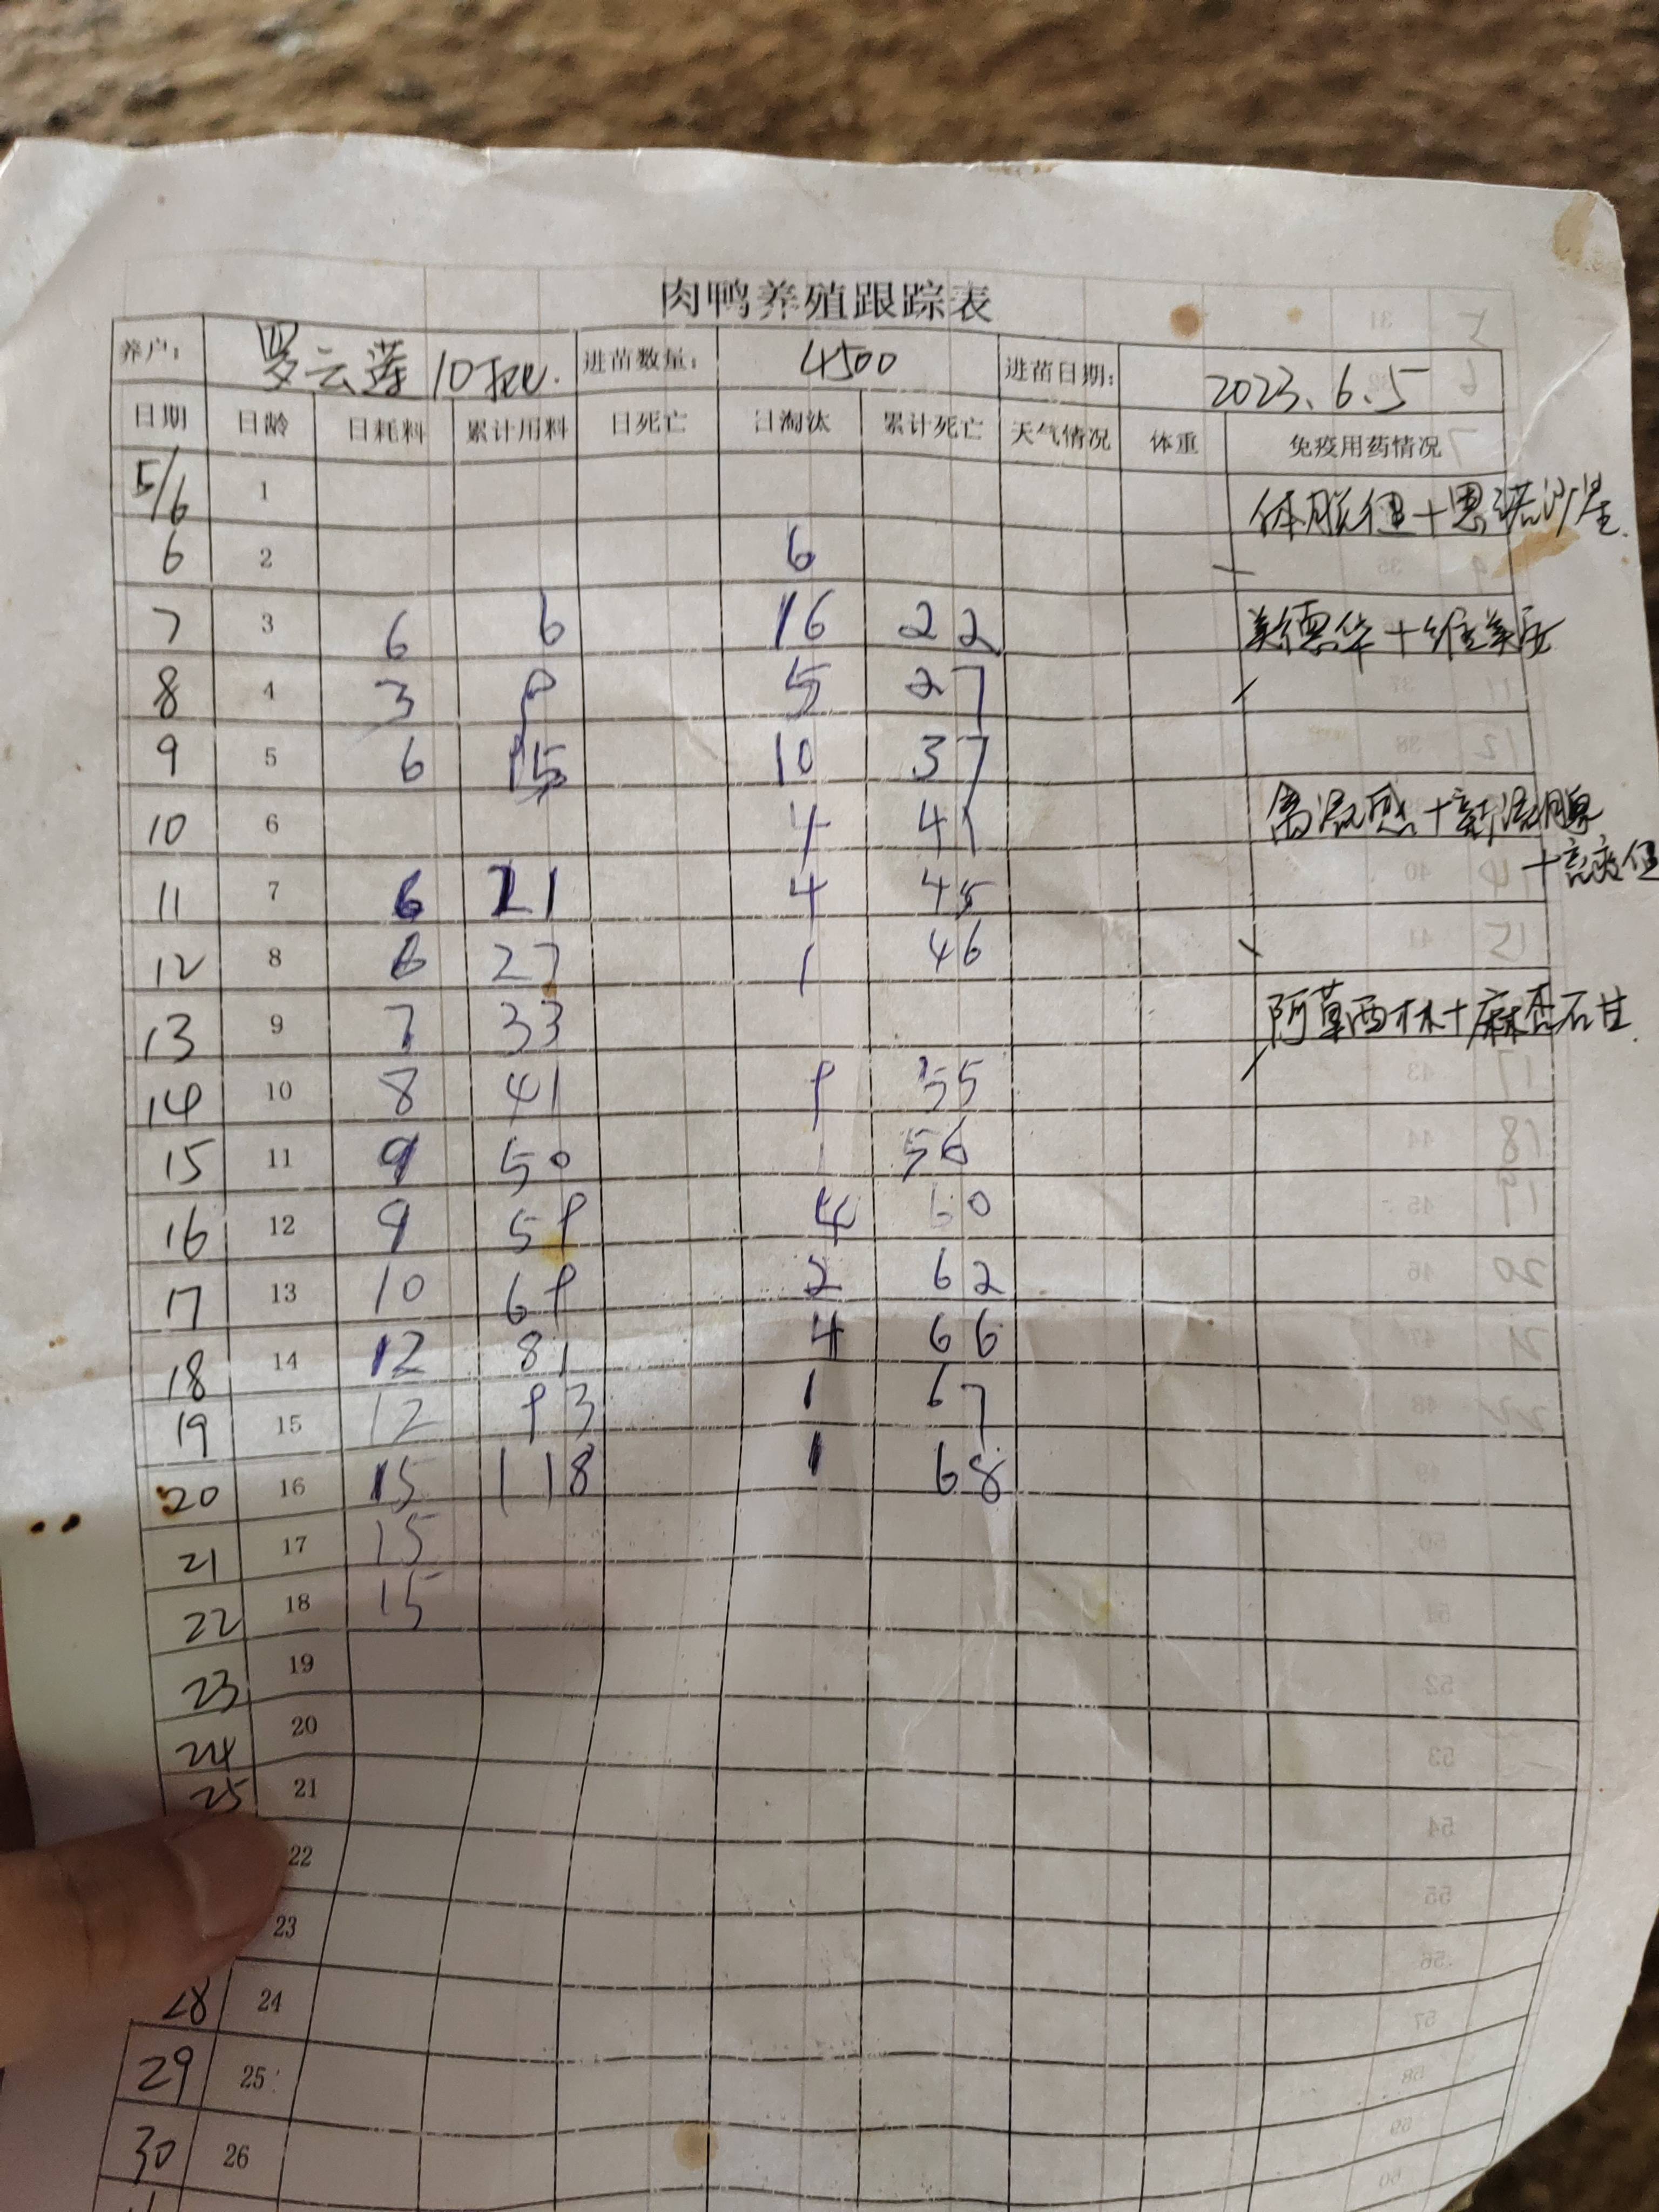 肉鸭养殖跟踪表
养户: 罗云莲 10 进苗数量: 4500 进苗日期: 2023.6.5
日期 日龄 日耗料 累计用料 日死亡 日淘汰 累计死亡 天气情况 体重 免疫用药情况
5/6 1 +恩诺沙星.
6 2 6
7 3 6 6 16 22
8 4 3 9 5 27
9 5 6 15 10 37
10 6 4 41
11 7 6 21 4 45
12 8 6 27 1 46
13 9 7 33 阿莫西林+麻杏石甘.
14 10 8 41 9 55
15 11 9 50 1 56
16 12 9 59 4 60
17 13 10 69 2 62
18 14 12 81 4 66
19 15 12 93 1 67
20 16 15 118 1 68
21 17 15
22 18 15
23 19
24 20
25 21
22
23
28 24
29 25
30 26